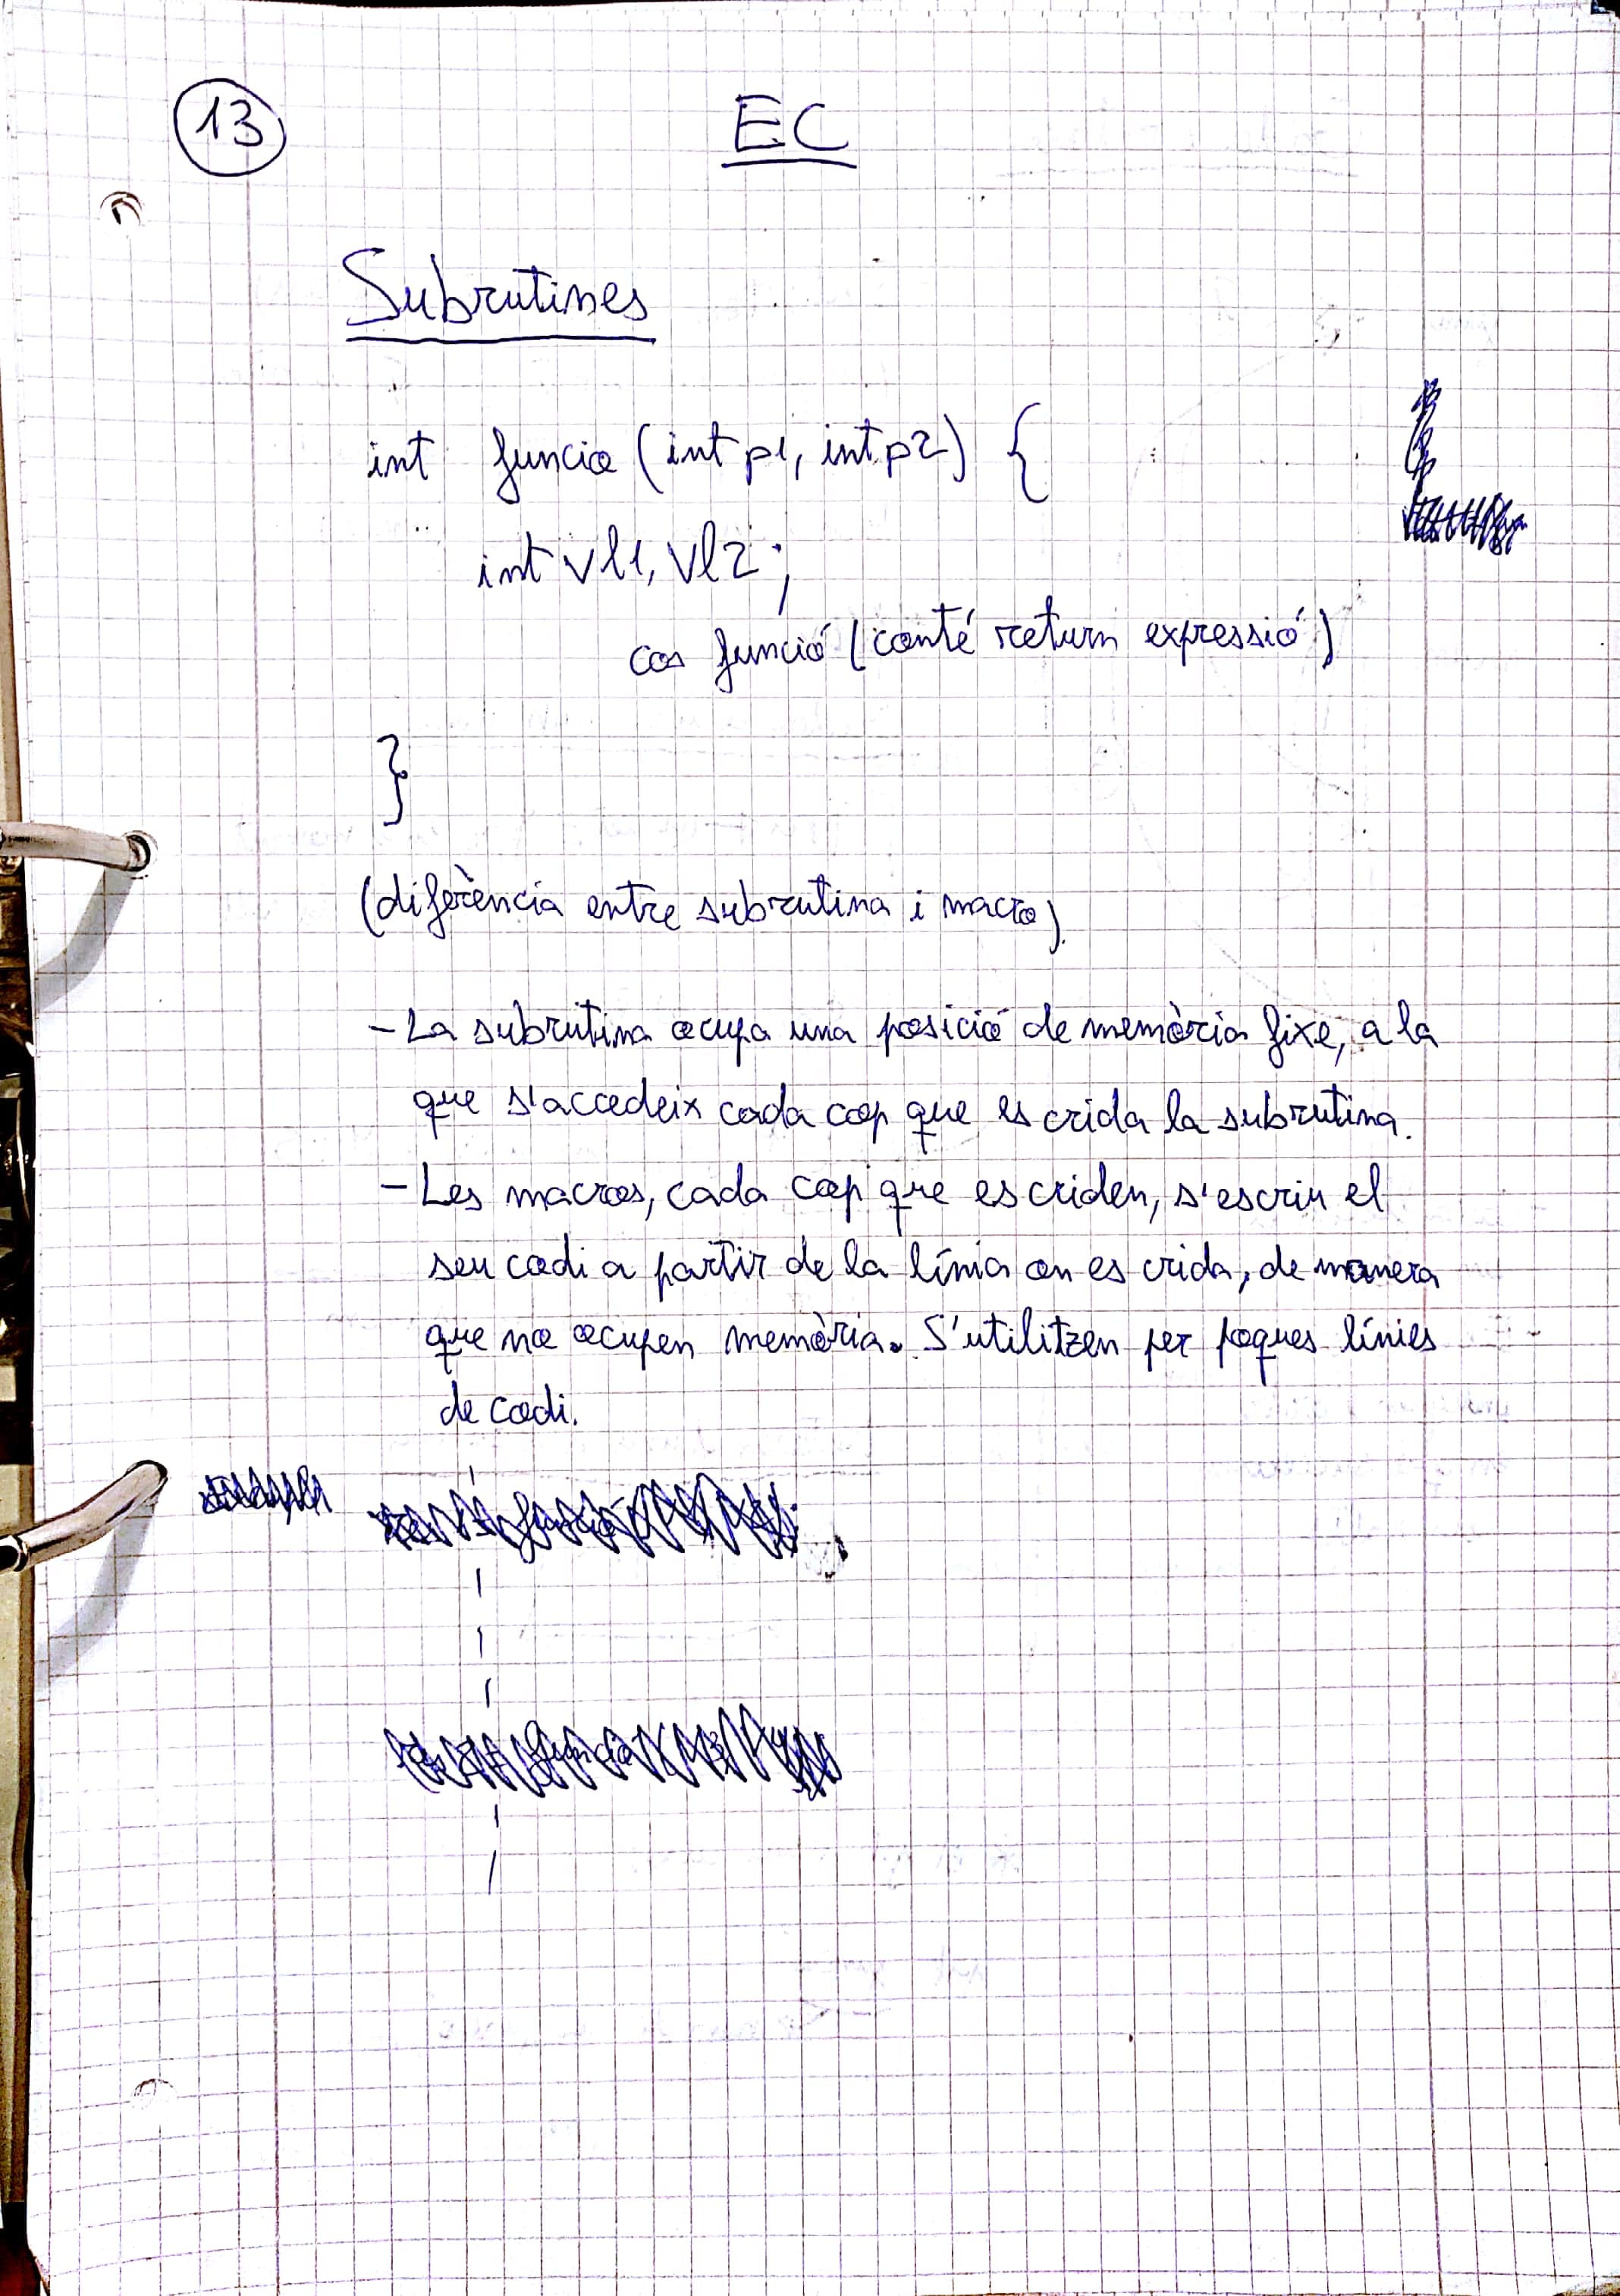 13
EC
Subrutines
int funcio (int p1, int p2) {
int vl1, vl2;
cos funció (conté return expressió)
}
(diferència entre subrutina i macro).
- La subrutina ocupa una posició de memòria fixe, a la
que s'accedeix cada cop que es crida la subrutina.
- Les macros, cada cop que es criden, s'escriu el
seu codi a partir de la línia on es crida, de manera
que no ocupen memòria. S'utilitzen per poques línies
de codi.